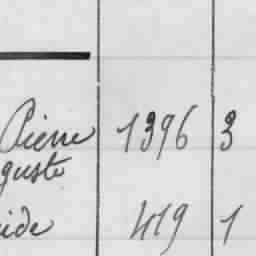 Pierre 1396 3
guste
ide 419 1